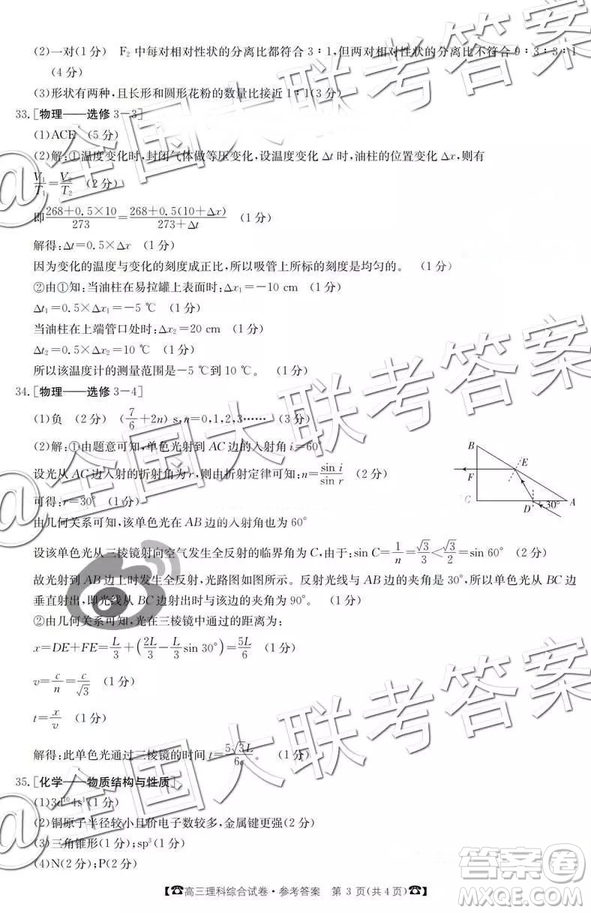 (2)一对(1分) F₂中每对相对性状的分离比都符合3∶1,但两对相对性状的分离比不符合9∶3∶3∶1
(4分)
(3)形状有两种,且长形和圆形花粉的数量比接近1∶1(3分)
33.[物理——选修3-3]
(1)ACE (5分)
(2)解:①温度变化时,封闭气体做等压变化,设温度变化Δt时,油柱的位置变化Δx,则有
V₁/T₁=V₂/T₂ (2分)
即(268+0.5×10)/273=(268+0.5(10+Δx))/(273+Δt) (1分)
解得:Δt=0.5×Δx (1分)
因为变化的温度与变化的刻度成正比,所以吸管上的刻度是均匀的。(1分)
②由①知:当油柱在易拉罐上端管口处时:Δx₁=-10 cm (1分)
Δt₁=0.5×Δx₁=-5 ℃ (1分)
当油柱在上端管口处时:Δx₂=20 cm (1分)
Δt₂=0.5×Δx₂=10 ℃ (1分)
所以该温度计的测量范围是-5 ℃到10 ℃。(1分)
34.[物理——选修3-4]
(1)负 (2分) (7/6+2n) s,n=0,1,2,3…… (3分)
(2)解:①由题意可知,单色光射到AC边的入射角i=60°
设光从AC边入射的折射角为r,则由折射定律可知:n=sin i/sin r (2分)
可得:r=30° (1分)
由几何关系可知,该单色光在AB边的入射角也为60°
设该单色光从三棱镜射向空气发生全反射的临界角为C,由于:sin C=1/n=√3/3<√3/2 (2分)
故光射到AB边上时发生全反射,光路图如图。反射光线与AB边的夹角是30°,所以光从BC边
垂直射出,即光线从BC边射出时与该边的夹角为90°。(1分)
②由几何关系可知,光在三棱镜中通过的距离为:
x=DE+FE=L/3+(2L/3-L/3 sin 30°)=5L/6 (1分)
v=c/n=c/√3 (1分)
t=x/v
解得:此单色光通过三棱镜的时间=5√3L/6c (1分)
35.[化学——物质结构与性质]
(1)3d¹⁰4s¹(1分)
(2)铜原子半径较小且价电子数较多,金属键更强(2分)
(3)三角锥形(1分);sp³(1分)
(4)N(2分);P(2分)
B
E
F
C
D
30°
A
☎高三理科综合试卷·参考答案 第3页(共4页)☎
全国大联考答案
全国大联考答案
全国大联考答案
答案圈